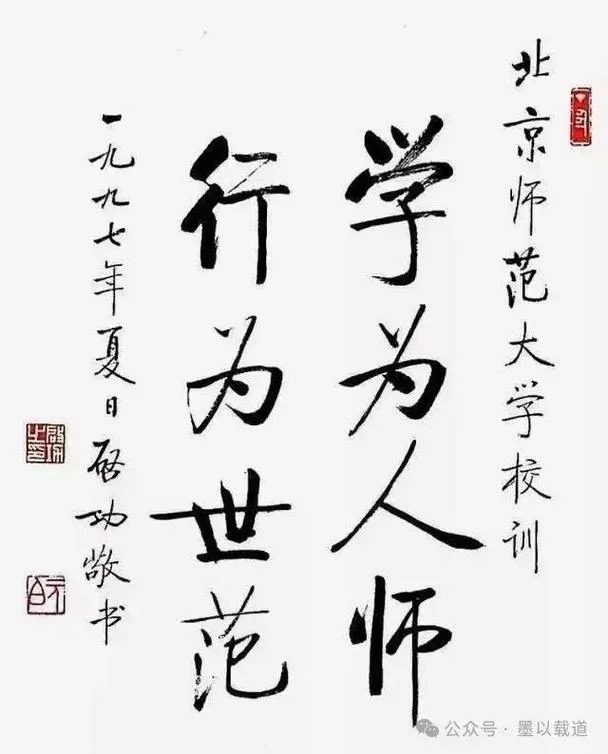 北京师范大学校训
学为人师
行为世范
一九九七年夏日启功敬书
公众号·墨以载道